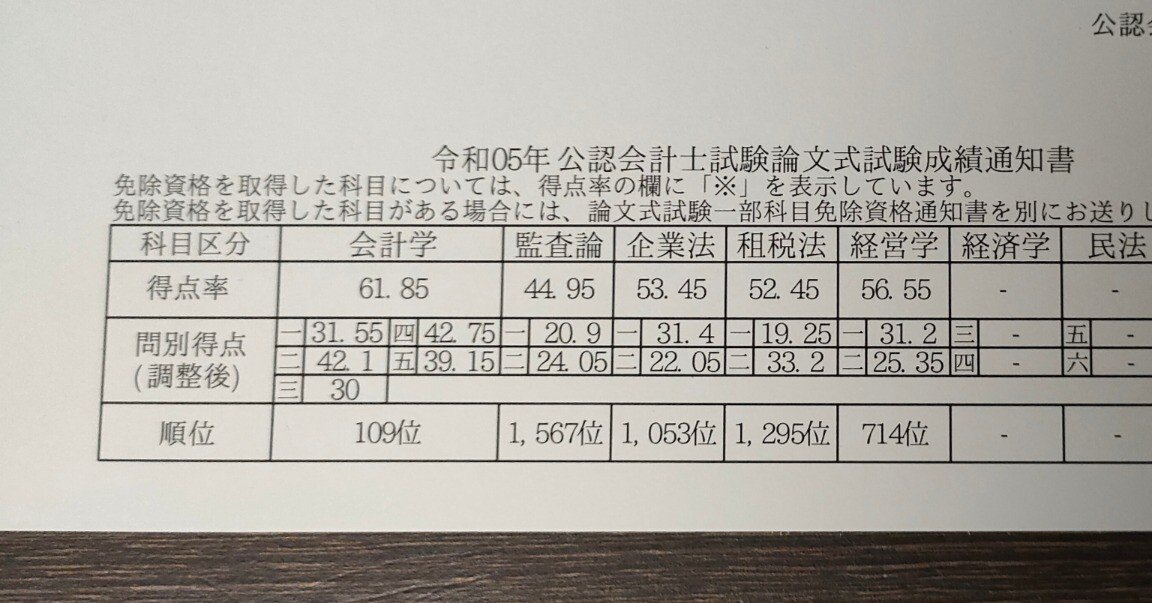 公認
令和05年 公認会計士試験論文式試験成績通知書
免除資格を取得した科目については、得点率の欄に「※」を表示しています。
免除資格を取得した科目がある場合には、論文式試験一部科目免除資格通知書を別にお送りし
科目区分 会計学 監査論 企業法 租税法 経営学 経済学 民法
得点率 61.85 44.95 53.45 52.45 56.55 - -
問別得点 (調整後)
一 31.55 四 42.75 一 20.9 一 31.4 一 19.25 一 31.2 三 - 五 -
二 42.1 五 39.15 二 24.05 二 22.05 二 33.2 二 25.35 四 - 六 -
三 30
順位 109位 1,567位 1,053位 1,295位 714位 - -